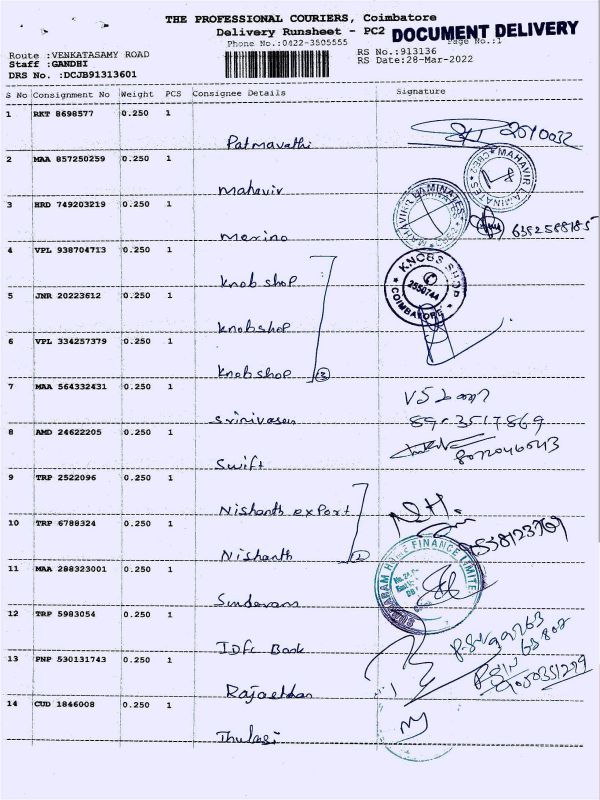 THE PROFESSIONAL COURIERS, Coimbatore
Delivery Runsheet - PC2 DOCUMENT DELIVERY
Phone No.:0422-3505555 Page No.:1
Route :VENKATASAMY ROAD RS No.:913136
Staff :GANDHI RS Date:28-Mar-2022
DRS No. :DCJB91313601
S No Consignment No Weight PCS Consignee Details Signature
1 RKT 8698577 0.250 1 Patmavathi
2 MAA 857250259 0.250 1 Mahavir
MAHAVIR LAMINATES
3 HRD 749203219 0.250 1 Merino
MAHAVIR LAMINATES
4 VPL 938704713 0.250 1 Knob shop
KNOBS SHOP
2550744
COIMBATORE
5 JNR 20223612 0.250 1 Knobshop
6 VPL 334257379 0.250 1 Knobshop 3
7 MAA 564332431 0.250 1 Srinivasan
8 AMD 24622205 0.250 1 Swift
9 TRP 2522096 0.250 1 Nishanth export
10 TRP 6788324 0.250 1 Nishanth
11 MAA 288323001 0.250 1 Sundaram
SUNDARAM HOME FINANCE LIMITE
12 TRP 5983054 0.250 1 IDFC Bank
13 PNP 530131743 0.250 1 Rajasthan
14 CUD 1846008 0.250 1 Thulasi